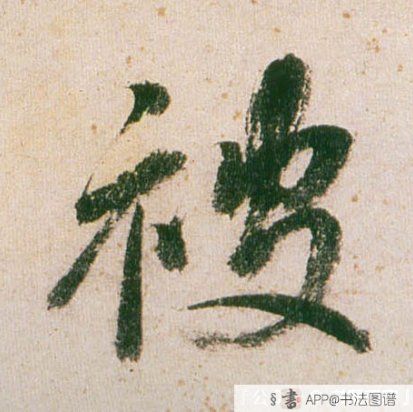 被
§書 APP@书法图谱